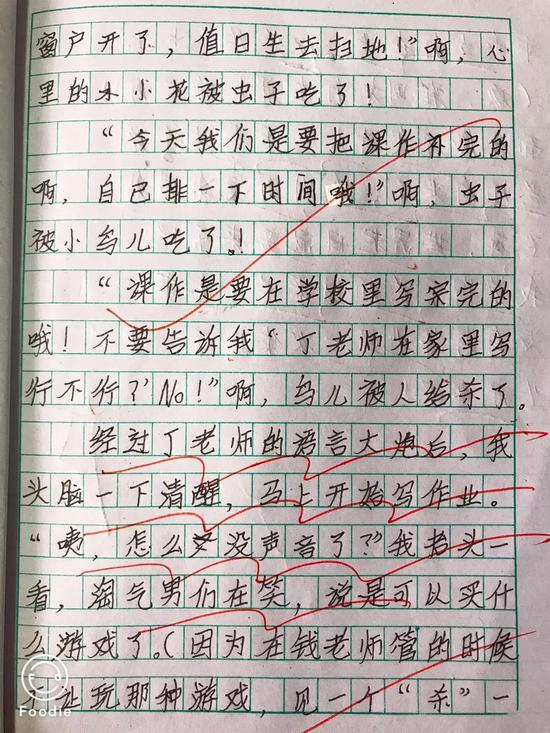 窗户开了，值日生去扫地！”啊，心
里的木小花被虫子吃了！
“今天我们是要把课作补完的
啊，自己排一下时间哦！”啊，虫子
被小鸟儿吃了。！
“课作是要在学校里写完的
哦！不要告诉我“丁老师在家里写
行不行？’No！”啊，鸟儿被人给杀了。
经过丁老师的语言大炮后，我
头脑一下清醒，马上开始写作业。
“咦，怎么没声音了？”我抬头一
看，淘气男们在笑，说是可以买什
么游戏了。（因为在钱老师管的时候
玩那种游戏，见一个“杀”一
Foodie